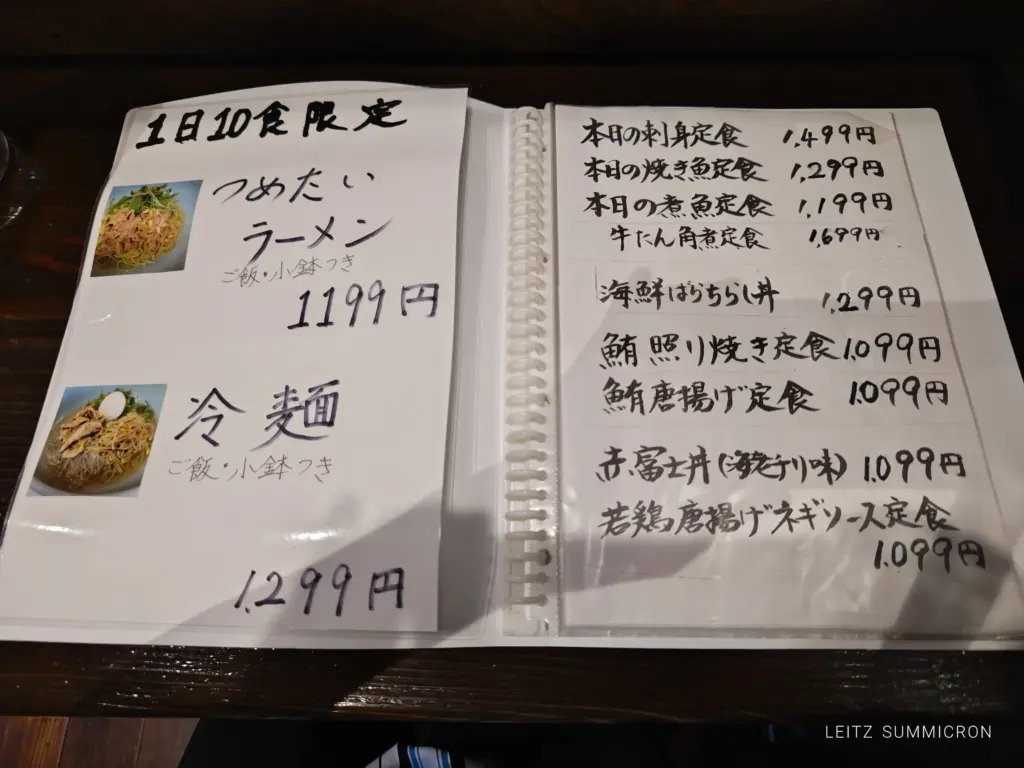 1日10食限定
つめたい
ラーメン
ご飯・小鉢つき
1199円
冷麺
ご飯・小鉢つき
1.299円
本日の刺身定食 1,499円
本日の焼き魚定食 1,299円
本日の煮魚定食 1,199円
牛たん角煮定食 1,699円
海鮮ばらちらし丼 1,299円
鮪照り焼き定食 1.099円
鮪唐揚げ定食 1.099円
赤富士丼(海老チリ味) 1.099円
若鶏唐揚げネギソース定食
1.099円
LEITZ SUMMICRON